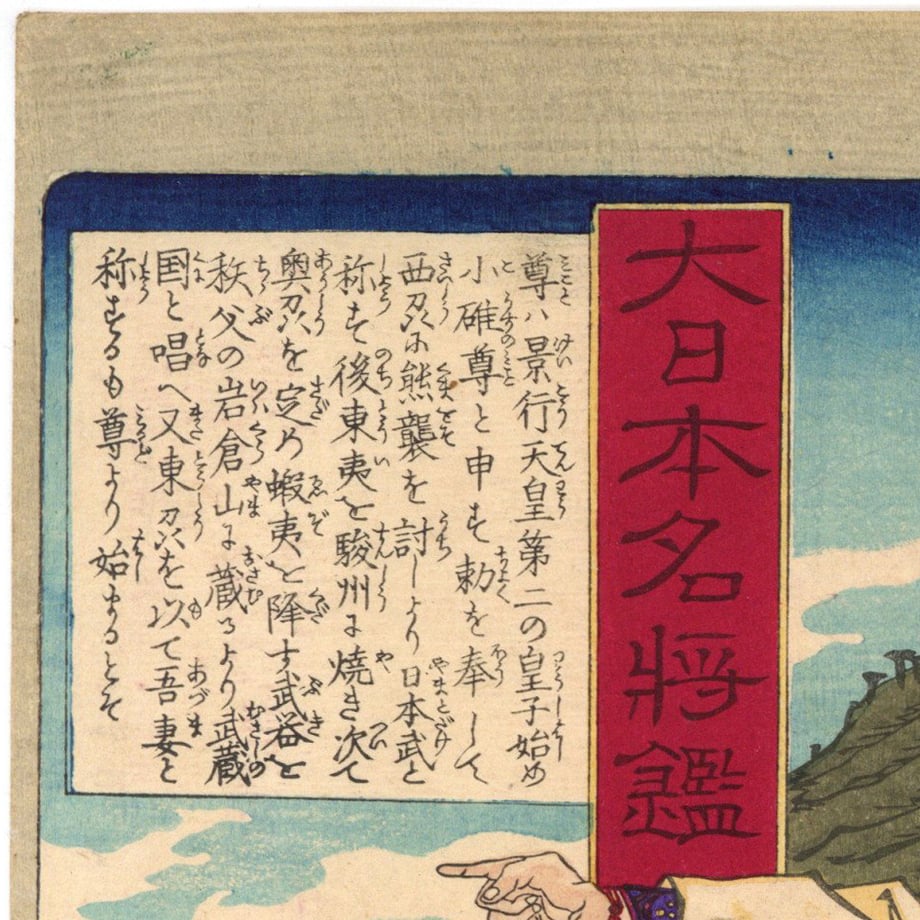 大日本名将鑑
尊ハ景行天皇第二の皇子始め
小碓尊と申す勅を奉して
西刕に熊襲を討しより日本武と
称す後東夷を駿州に焼き次て
奥刕を定め蝦夷を降す武器を
秩父の岩倉山に蔵るより武蔵
国と唱へ又東刕を以て吾妻と
称するも尊より始まるとそ